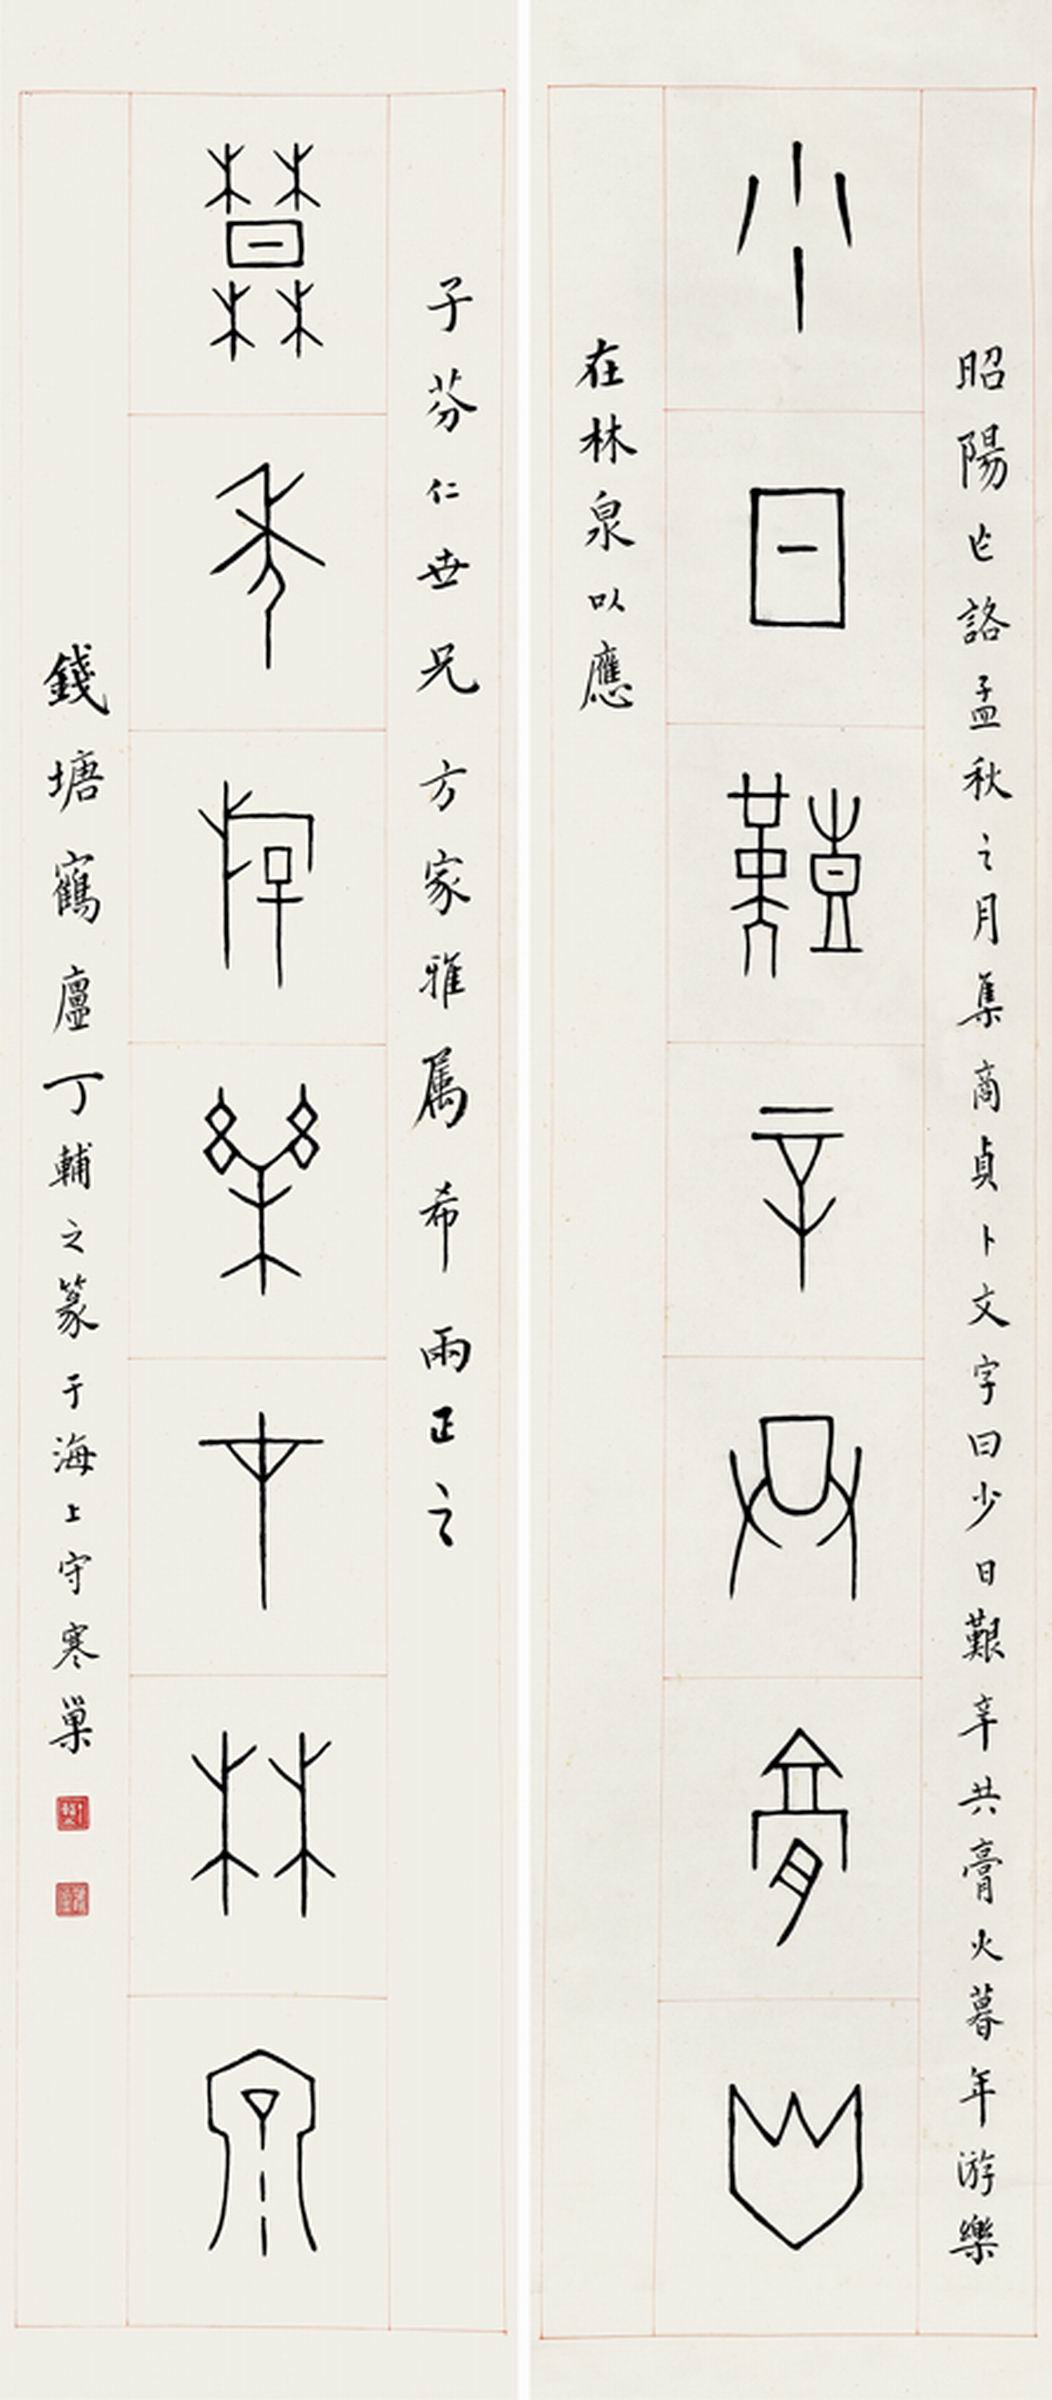 昭陽乍詻孟秋之月集商貞卜文字曰少日艱辛共膏火暮年游樂
少日艱辛共膏火
在林泉以應
子芬仁世兄方家雅属希兩正之
暮年游樂在林泉
錢塘鶴廬丁輔之篆于海上守寒巢